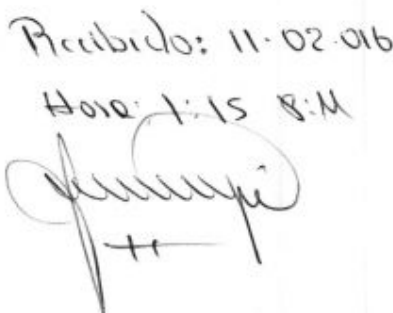 Recibido: 11-02-016
Hora: 1:15 P:M